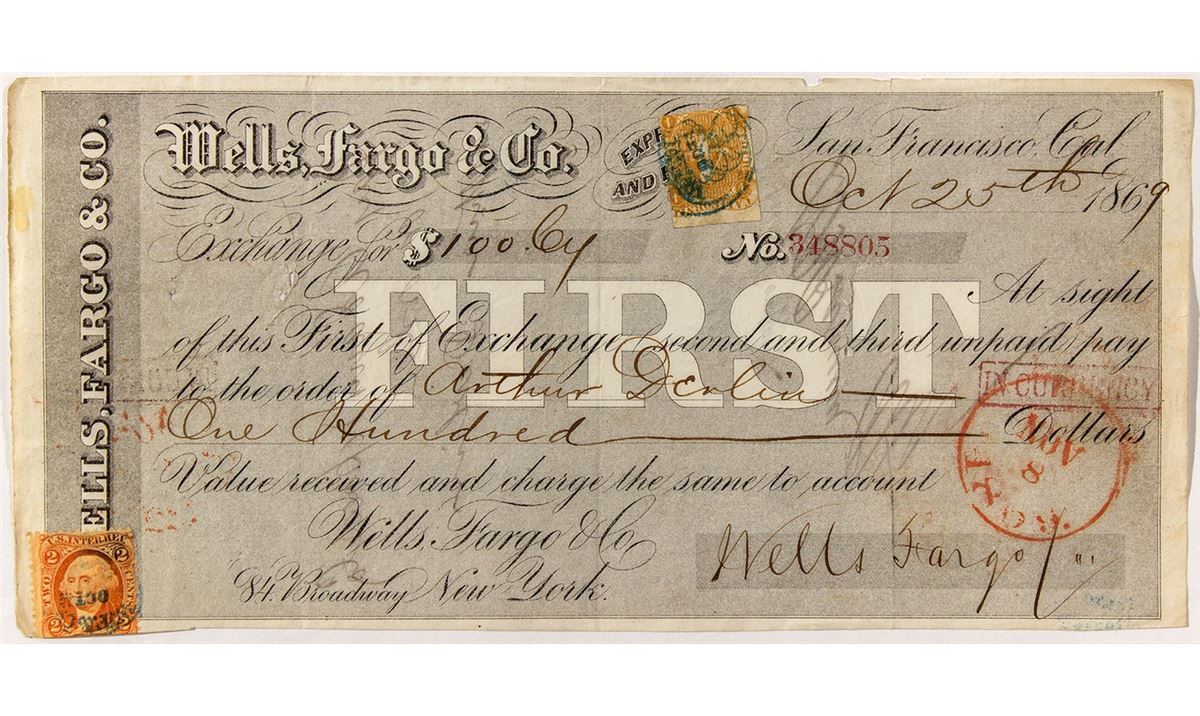 WELLS, FARGO & CO.
Wells, Fargo & Co.
EXPR
AND
San Francisco, Cal
Oct 25th 1869
Exchange for $100.Cy
No. 348805
FIRST
At sight
of this First of Exchange, second and third unpaid, pay
to the order of Arthur Devlin
IN CURRENCY
One Hundred Dollars
NOV
8
Value received and charge the same to account
Wells, Fargo & Co
84. Broadway New York.
Wells Fargo
U.S. INTER. REV.
2 2
TWO CENTS
OCT
2 2